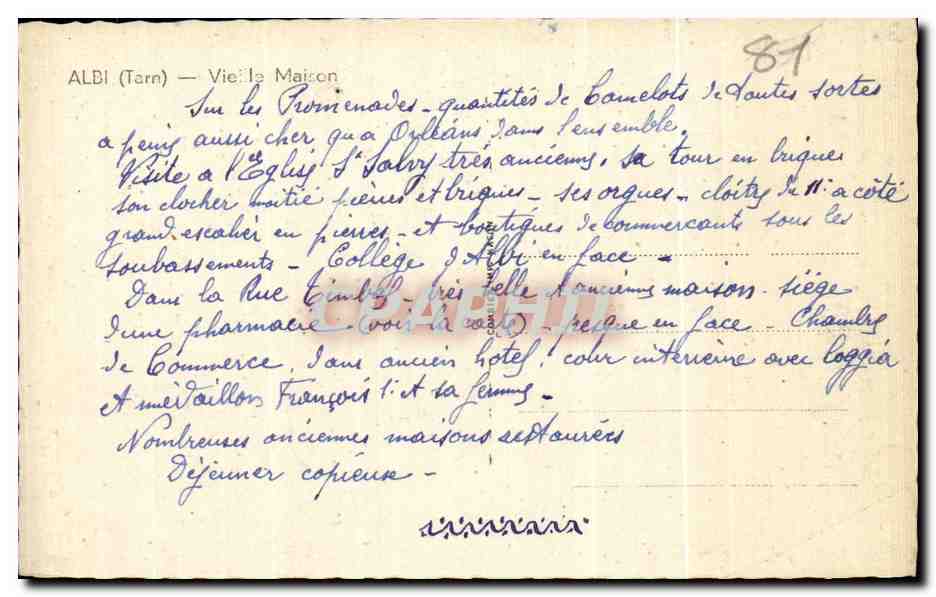 81
ALBI (Tarn) — Vieille Maison
Sur les Promenades - quantités de Camelots de toutes sortes
a peine aussi cher qu'a Orléans dans l'ensemble.
Visite a l'Eglise St Salvy très ancienne. sa tour en briques
son clocher moitié pierres et briques - ses orgues - cloitre du 11e a côté
grand escalier en pierres - et boutiques de commercants sous les
soubassements - Collège d'Albi en face -
Dans la Rue Timbal - très belle et ancienne maison - siège
d'une pharmacie (voir la carte) - presque en face - Chambre
de Commerce, dans ancien hotel, cour interieure avec loggia
et médaillon François 1er et sa femme -
Nombreuses anciennes maisons restaurées
Déjeuner copieux -
CPARAMA